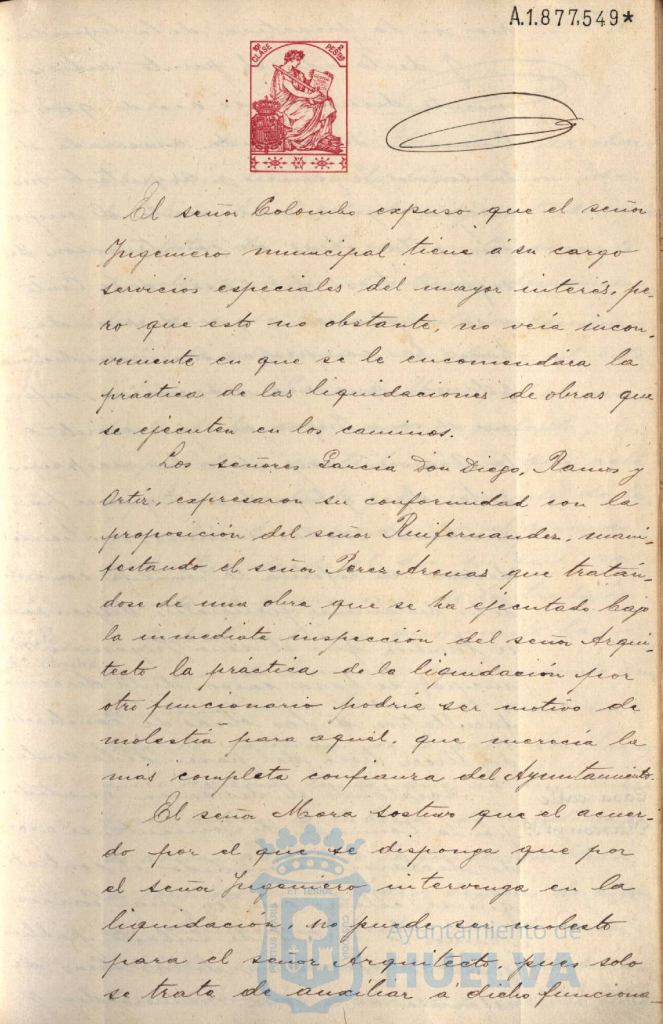 A.1.877,549*
10ª CLASE
2 PESTAS
El señor Colombo expuso que el señor
Ingeniero municipal tiene á su cargo
servicios especiales del mayor interés, pe-
ro que esto no obstante, no veía incon-
veniente en que se le encomendára la
práctica de las liquidaciones de obras que
se ejecuten en los caminos.
Los señores García Don Diego, Ramos y
Ortiz, expresaron su conformidad con la
proposición del señor Ruifernandez, mani-
festando el señor Perez Arenas que tratán-
dose de una obra que se ha ejecutado bajo
la inmediata inspección del señor Arqui-
tecto la práctica de la liquidación por
otro funcionario podría ser motivo de
molestia para aquél, que merecía la
más completa confianza del Ayuntamiento.
El señor Mora sostuvo que el acuer-
do por el que se disponga que por
el señor Ingeniero intervenga en la
liquidación, no puede ser molesto
para el señor Arquitecto, pues solo
se trata de auxiliar á dicho funciona-
Ayuntamiento de
HUELVA